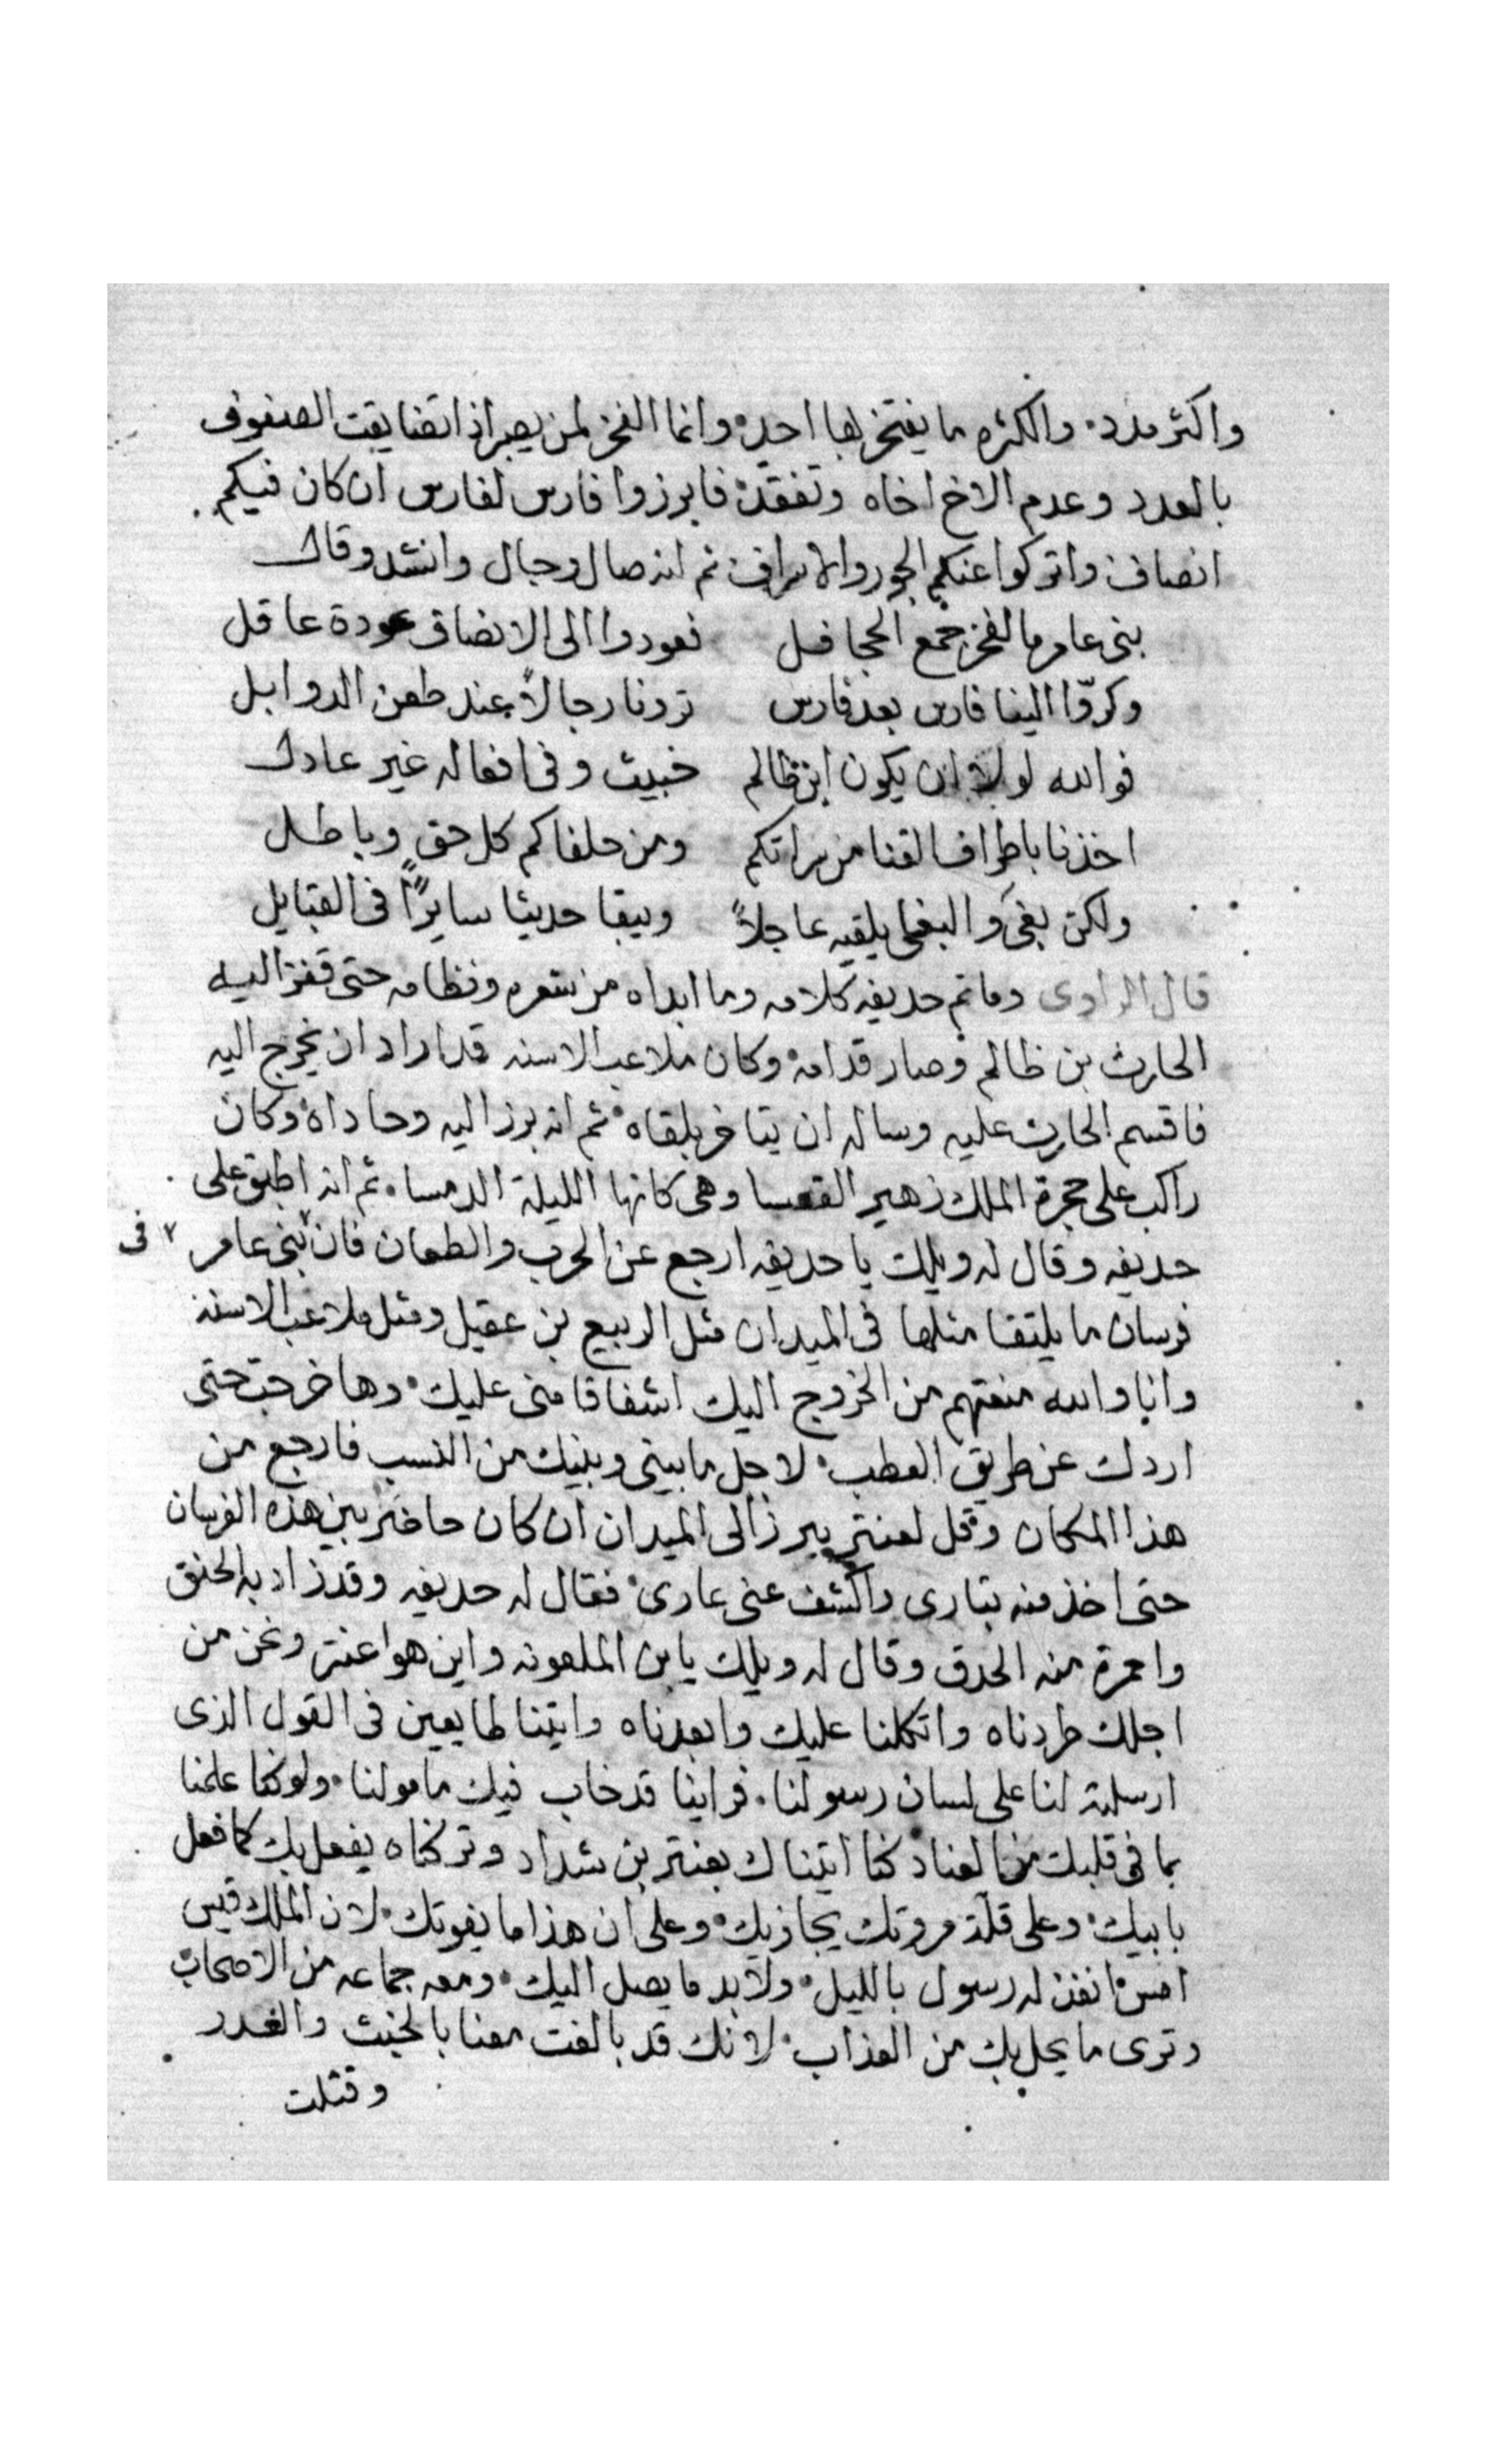 واكثر مدد، والكثره ما يفتخر بها احد، وانما الفخر لمن يصبر اذا تضايقت الصفوف
بالعدد وعدم الاخ اخاه وتفقد، فابرزوا فارس لفارس ان كان فيكم
انصاف واتركوا عنكم الجور والاسراف ثم انه صال وجال وانشد وقال
بنى عامر ما الفخر جمع الجحافل فعودوا الى الانصاف عودة عاقل
وكرّوا الينا فارس بعد فارس ترونا رجالاً عند طعن الدوابل
فوالله لولا ان يكون ابن ظالم خبيث وفى افعاله غير عادل
اخذنا باطراف القنا من سراتكم ومن حلفاكم كل حق وباطل
ولكن بغى والبغى يلقيه عاجلاً ويبقا حديثا سايراً فى القبايل
قال الراوى وما تم حديفه كلامه وما ابداه من شعره ونظامه حتى قفز اليه
الحارث بن ظالم وصار قدامه، وكان ملاعب الاسنه قد اراد ان يخرج اليه
فاقسم الحارث عليه وساله ان يتاخر بلقاه، ثم انه برز اليه وحاداه، وكان
راكب على حجرة الملك زهير القعسا وهى كانها الليلة الدمسا، ثم انه اطبق على
حديفه وقال له ويلك يا حديفه ارجع عن الحرب والطعان فان بنى عامر فى
فرسان ما يلتقا مثلها فى الميدان مثل الربيع بن عقيل ومثل ملاعب الاسنه
وانا والله منعتهم من الخروج اليك اشفاقا منى عليك، وها خرجت حتى
اردك عن طريق العطب، لاجل ما بينى وبينك من النسب فارجع من
هذا المكان وقل لعنتر يبرز الى الميدان ان كان حاضر بين هذه الفرسان
حتى اخذ منه بتارى واكشف عنى عارى، فقال له حديفه وقد زاد به الحنق
واحمرة منه الحدق وقال له ويلك يا بن الملعونه واين هو اعنتر ونحن من
اجلك طردناه واتكلنا عليك وابعدناه واتينا طايعين فى القول الذى
ارسلته لنا على لسان رسولنا، فراينا قد خاب فيك مامولنا، ولو كنا علمنا
بما فى قلبك من العناد كنا اتيناك بعنتر بن شداد وتركناه يفعل بك كما فعل
بابيك، وعلى قلة مروتك يجازيك، وعلى ان هذا ما يفوتك، لان الملك قيس
امس انفذ له رسول بالليل، ولابد ما يصل اليك، ومعه جماعه من الاصحاب
وترى ما يحل بك من العذاب، لانك قد بالغت معنا بالخبث والغدر
وقتلت